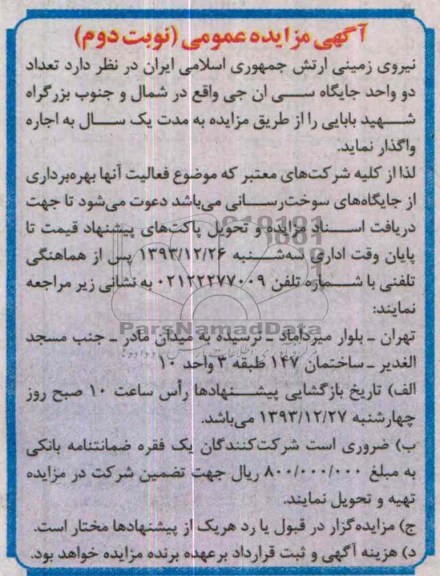 آگهی مزایده عمومی (نوبت دوم)
نیروی زمینی ارتش جمهوری اسلامی ایران در نظر دارد تعداد
دو واحد جایگاه سی ان جی واقع در شمال و جنوب بزرگراه
شهید بابایی را از طریق مزایده به مدت یک سال به اجاره
واگذار نماید.
لذا از کلیه شرکت‌های معتبر که موضوع فعالیت آنها بهره‌برداری
از جایگاه‌های سوخت‌رسانی می‌باشد دعوت می‌شود تا جهت
دریافت اسناد مزایده و تحویل پاکت‌های پیشنهاد قیمت تا
پایان وقت اداری سه‌شنبه ۱۳۹۳/۱۲/۲۶ پس از هماهنگی
تلفنی با شماره تلفن ۰۲۱۲۲۲۷۷۰۰۹ به نشانی زیر مراجعه
نمایند:
ParsNamadData
تهران ـ بلوار میرداماد ـ نرسیده به میدان مادر ـ جنب مسجد
الغدیر ـ ساختمان ۱۴۷ طبقه ۳ واحد ۱۰
الف) تاریخ بازگشایی پیشنهادها رأس ساعت ۱۰ صبح روز
چهارشنبه ۱۳۹۳/۱۲/۲۷ می‌باشد.
ب) ضروری است شرکت‌کنندگان یک فقره ضمانتنامه بانکی
به مبلغ ۸۰۰/۰۰۰/۰۰۰ ریال جهت تضمین شرکت در مزایده
تهیه و تحویل نمایند.
ج) مزایده‌گزار در قبول یا رد هریک از پیشنهادها مختار است.
د) هزینه آگهی و ثبت قرارداد برعهده برنده مزایده خواهد بود.